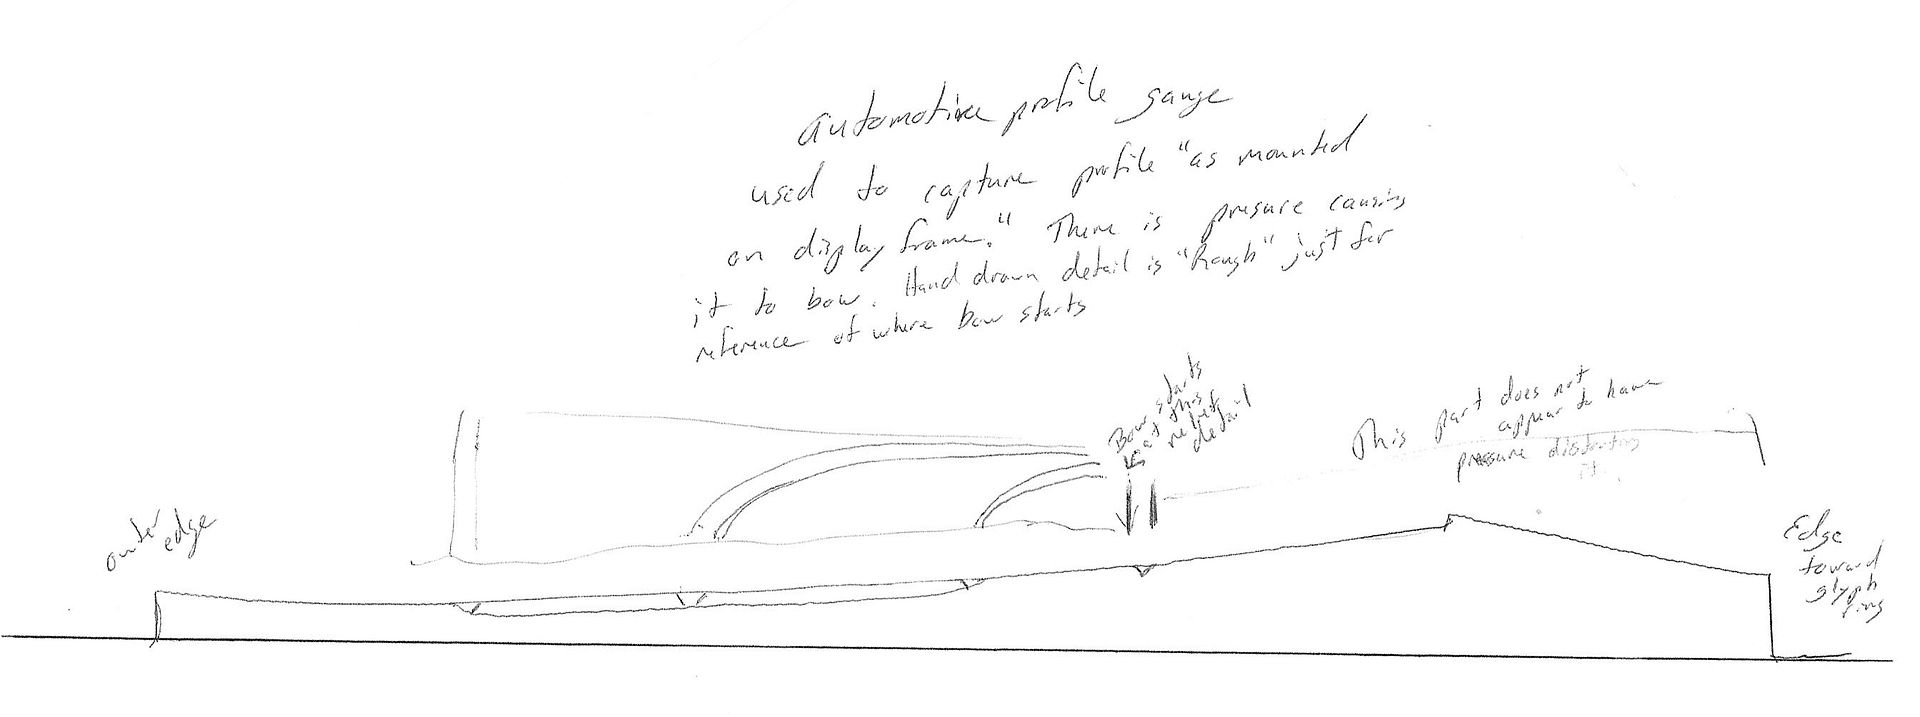 automotive profile gauge
used to capture profile "as mounted
on display frame." There is presure causing
it to bow. Hand drawn detail is "Rough" just for
reference of where bow starts
Bow starts
at this
relief
detail
This part does not
appear to have
pressure distorting
it.
outer
edge
Edge
toward
glyph
ring